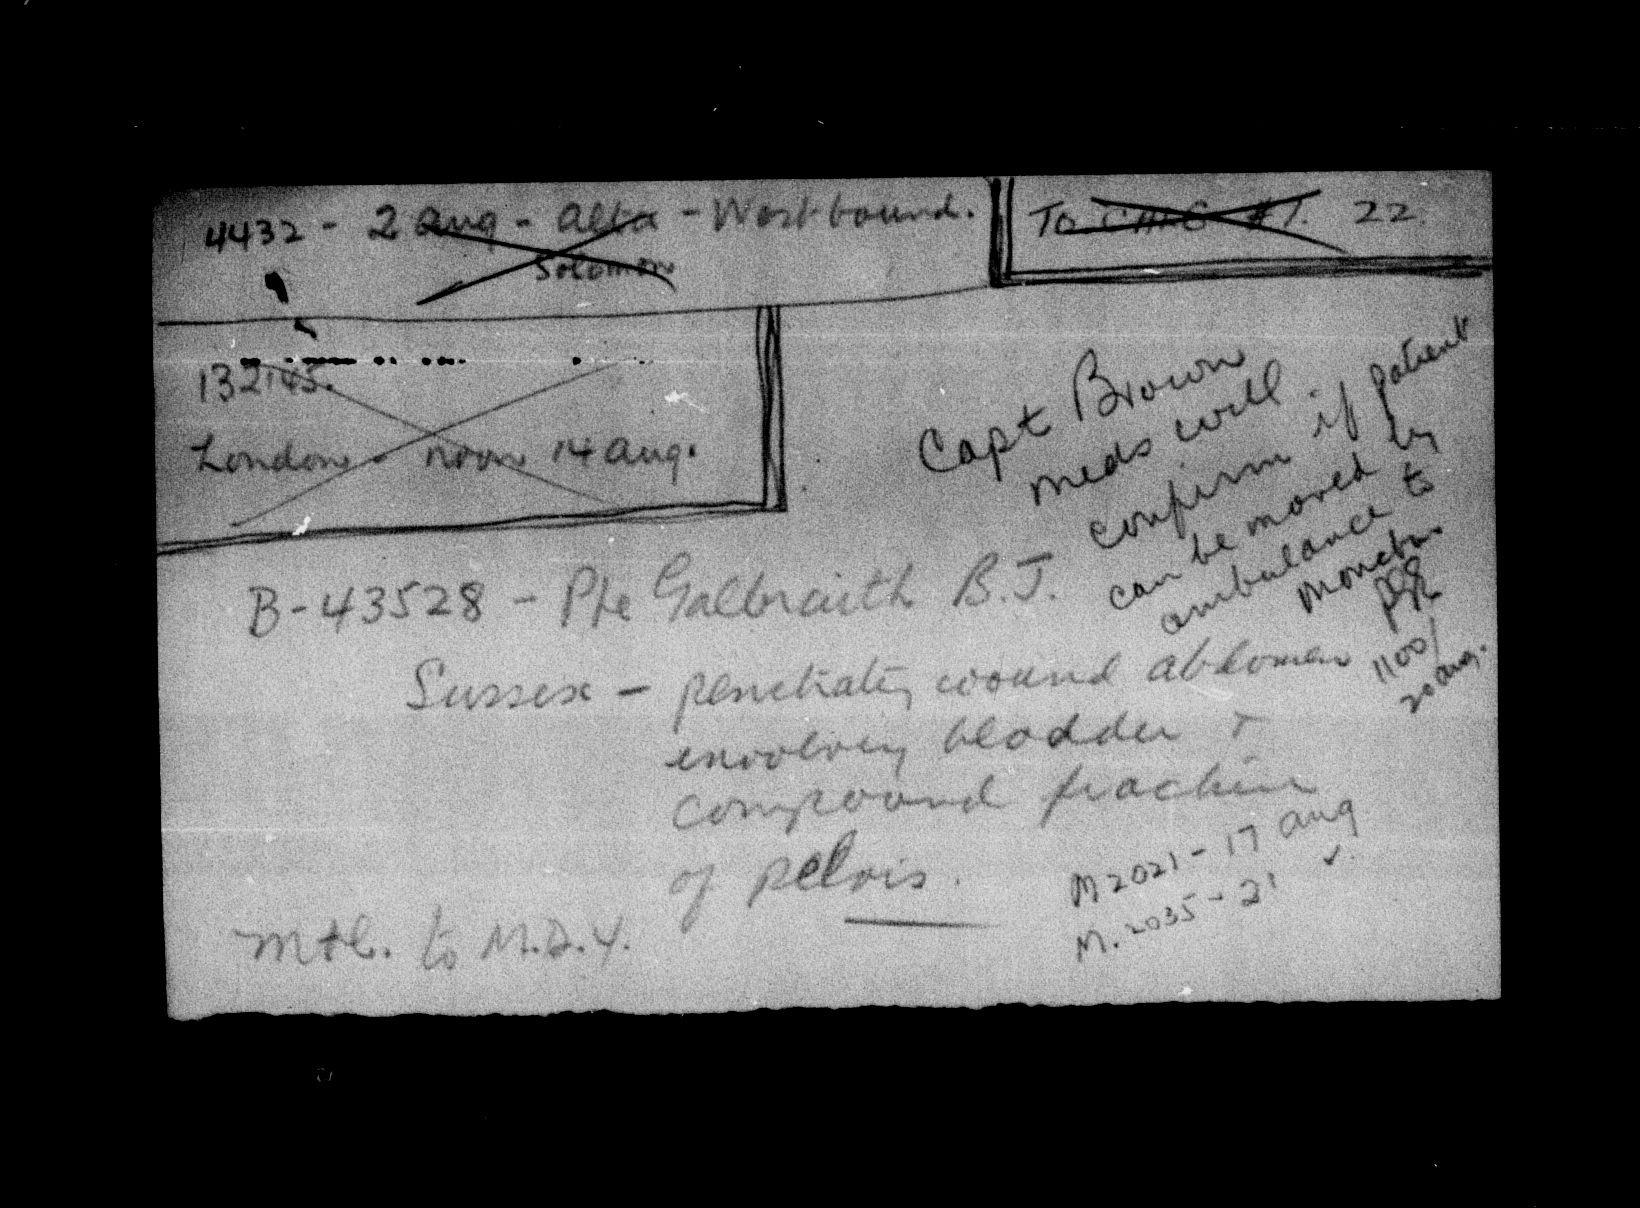 4432 - 2 Aug - Alta - Westbound.
Solomon
To CMHC #1. 22
132145.
London - noon 14 Aug.
Capt Brown
meds will
confirm if patient
can be moved by
ambulance to
Moncton.
1100/
20 Aug.
B-43528 - Pte Galbraith B.J.
Sussex - penetrating wound abdomen
involving bladder +
compound fracture
of pelvis.
M2021 - 17 Aug
M.2035 - 21 ✓
Mtl. to M.D.4.